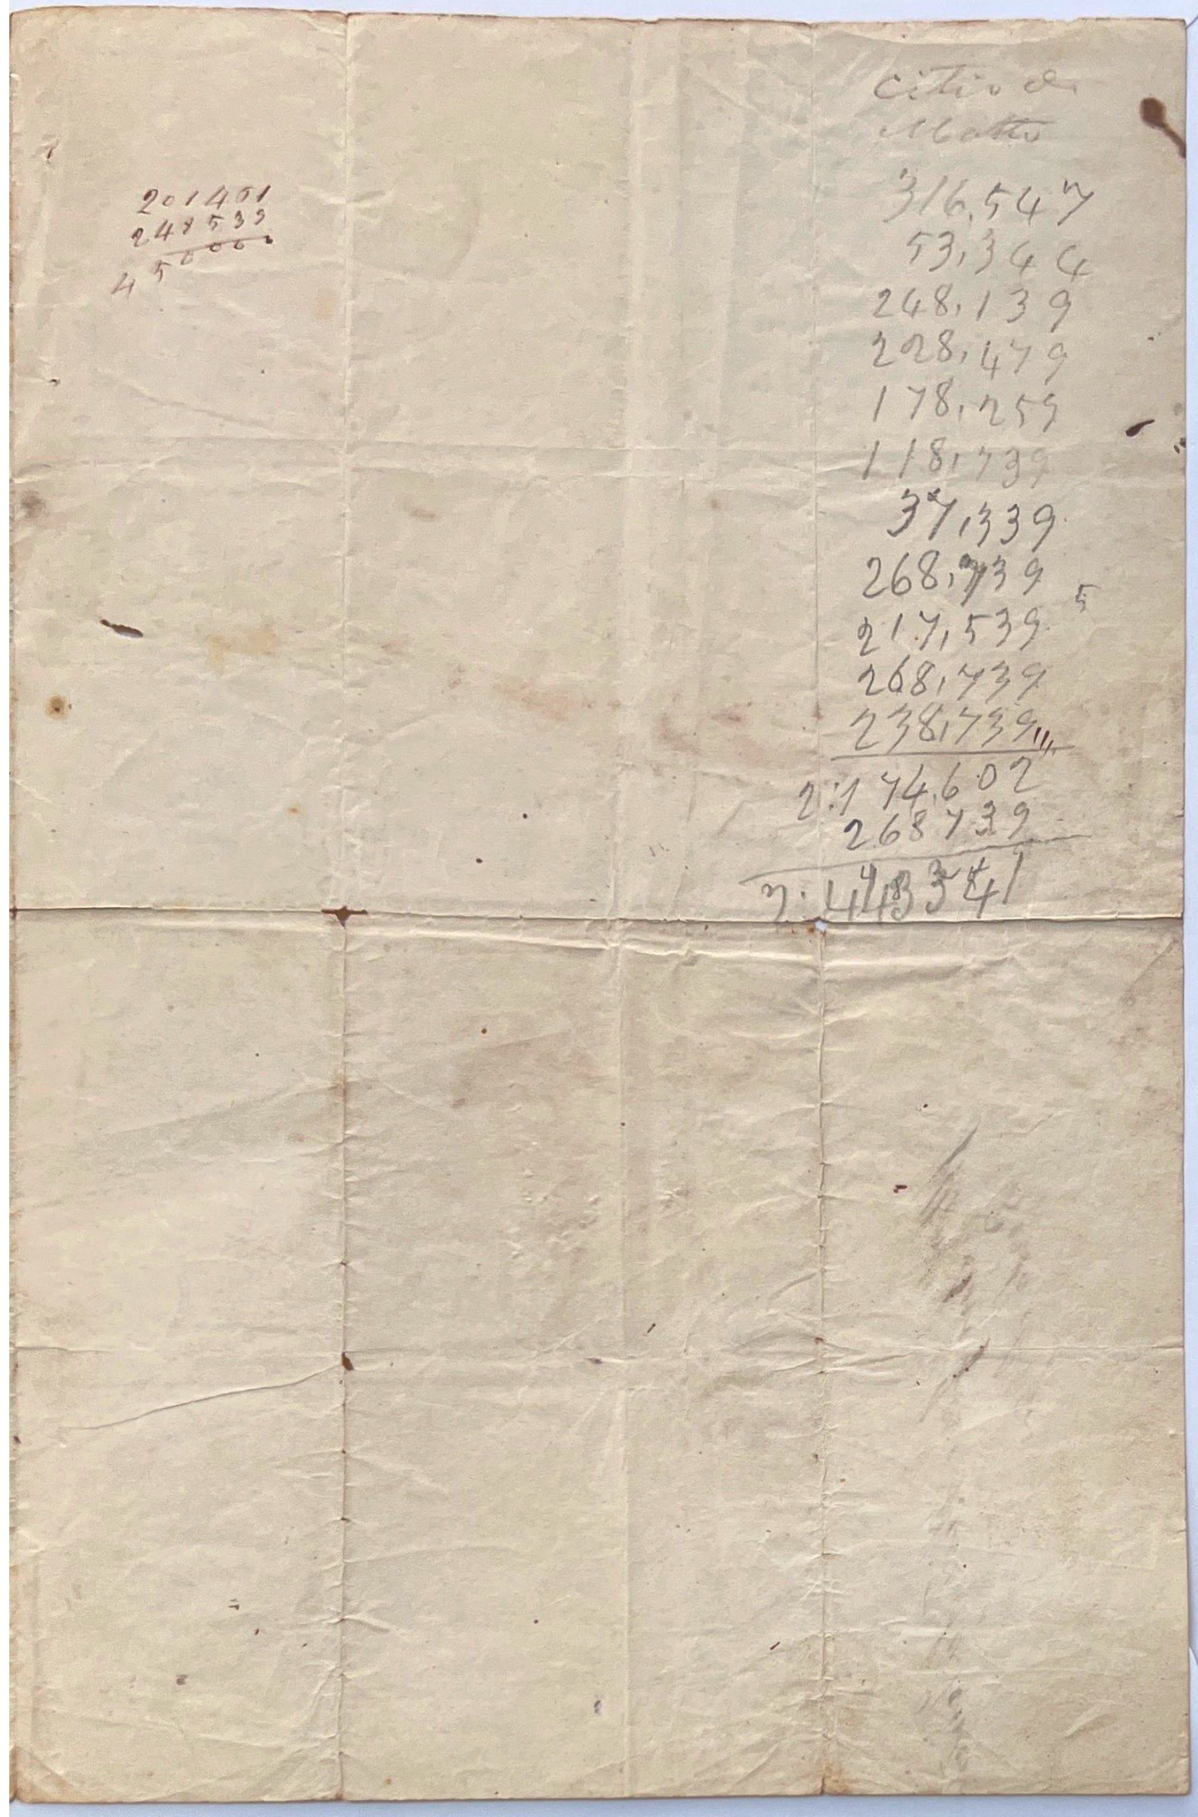 Citio do
Matto
316,547
53,344
248,139
228,479
178,259
118,739
37,339
268,739
5
217,539
268,739
238,739
2:174,602
268739
2:443341
201467
248533
450000